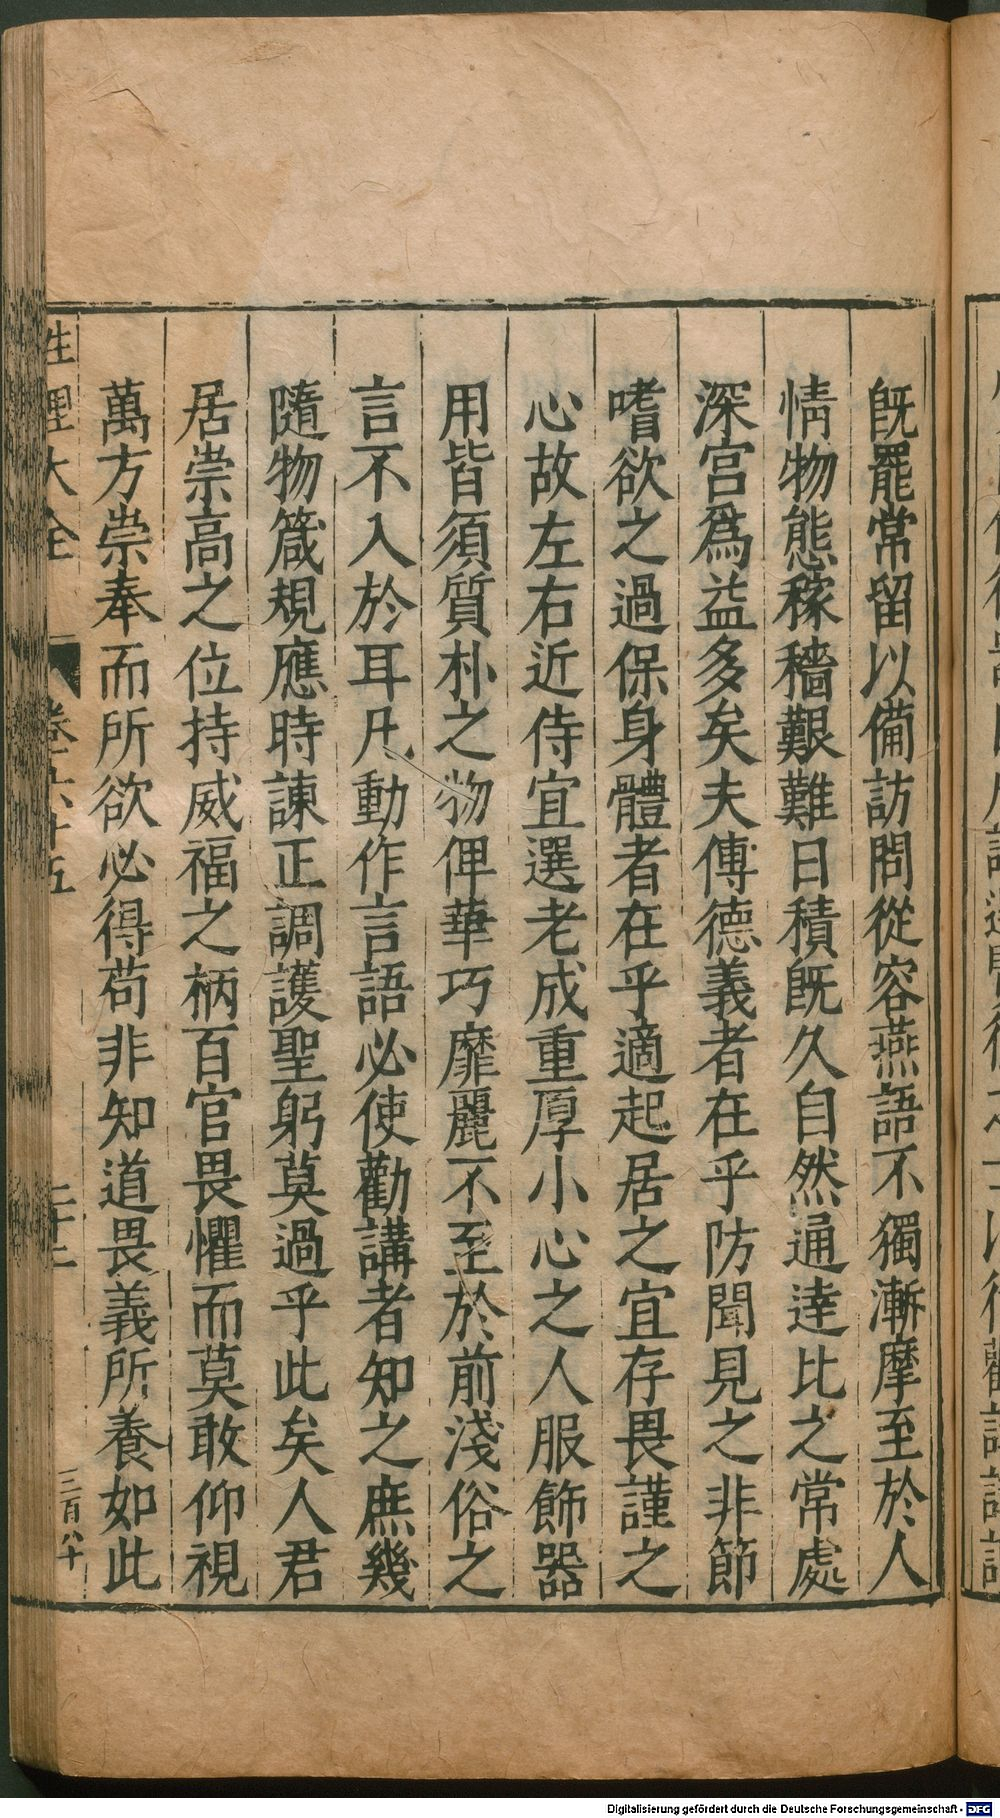 既罷常留以備訪問從容燕語不獨漸摩至於人
情物態稼穡艱難日積既久自然通達比之常處
深宫爲益多矣夫傅德義者在乎防聞見之非節
嗜欲之過保身體者在乎適起居之宜存畏謹之
心故左右近侍宜選老成重厚小心之人服飾器
用皆須質朴之物俾華巧靡麗不至於前淺俗之
言不入於耳凡動作言語必使勸講者知之庶幾
隨物箴規應時諫正調護聖躬莫過乎此矣人君
居崇高之位持威福之柄百官畏懼而莫敢仰視
萬方崇奉而所欲必得苟非知道畏義所養如此
性理大全
卷六十五
二十二
三百八十
Digitalisierung gefördert durch die Deutsche Forschungsgemeinschaft - DFG